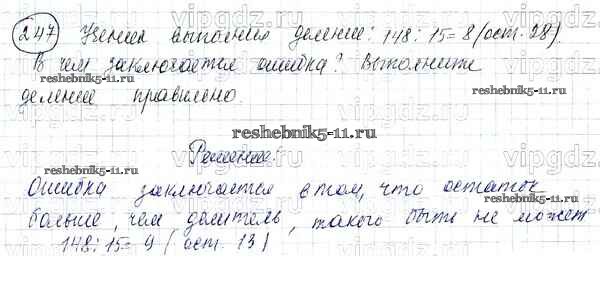 247 Ученик выполнил деление: 148:15=8(ост.28).
В чем заключается ошибка? Выполните
деление правильно.
reshebnik5-11.ru
reshebnik5-11.ru
reshebnik5-11.ru
Решение:
Ошибка заключается в том, что остаток
больше, чем делитель, такого быть не может
148:15=9 (ост. 13)